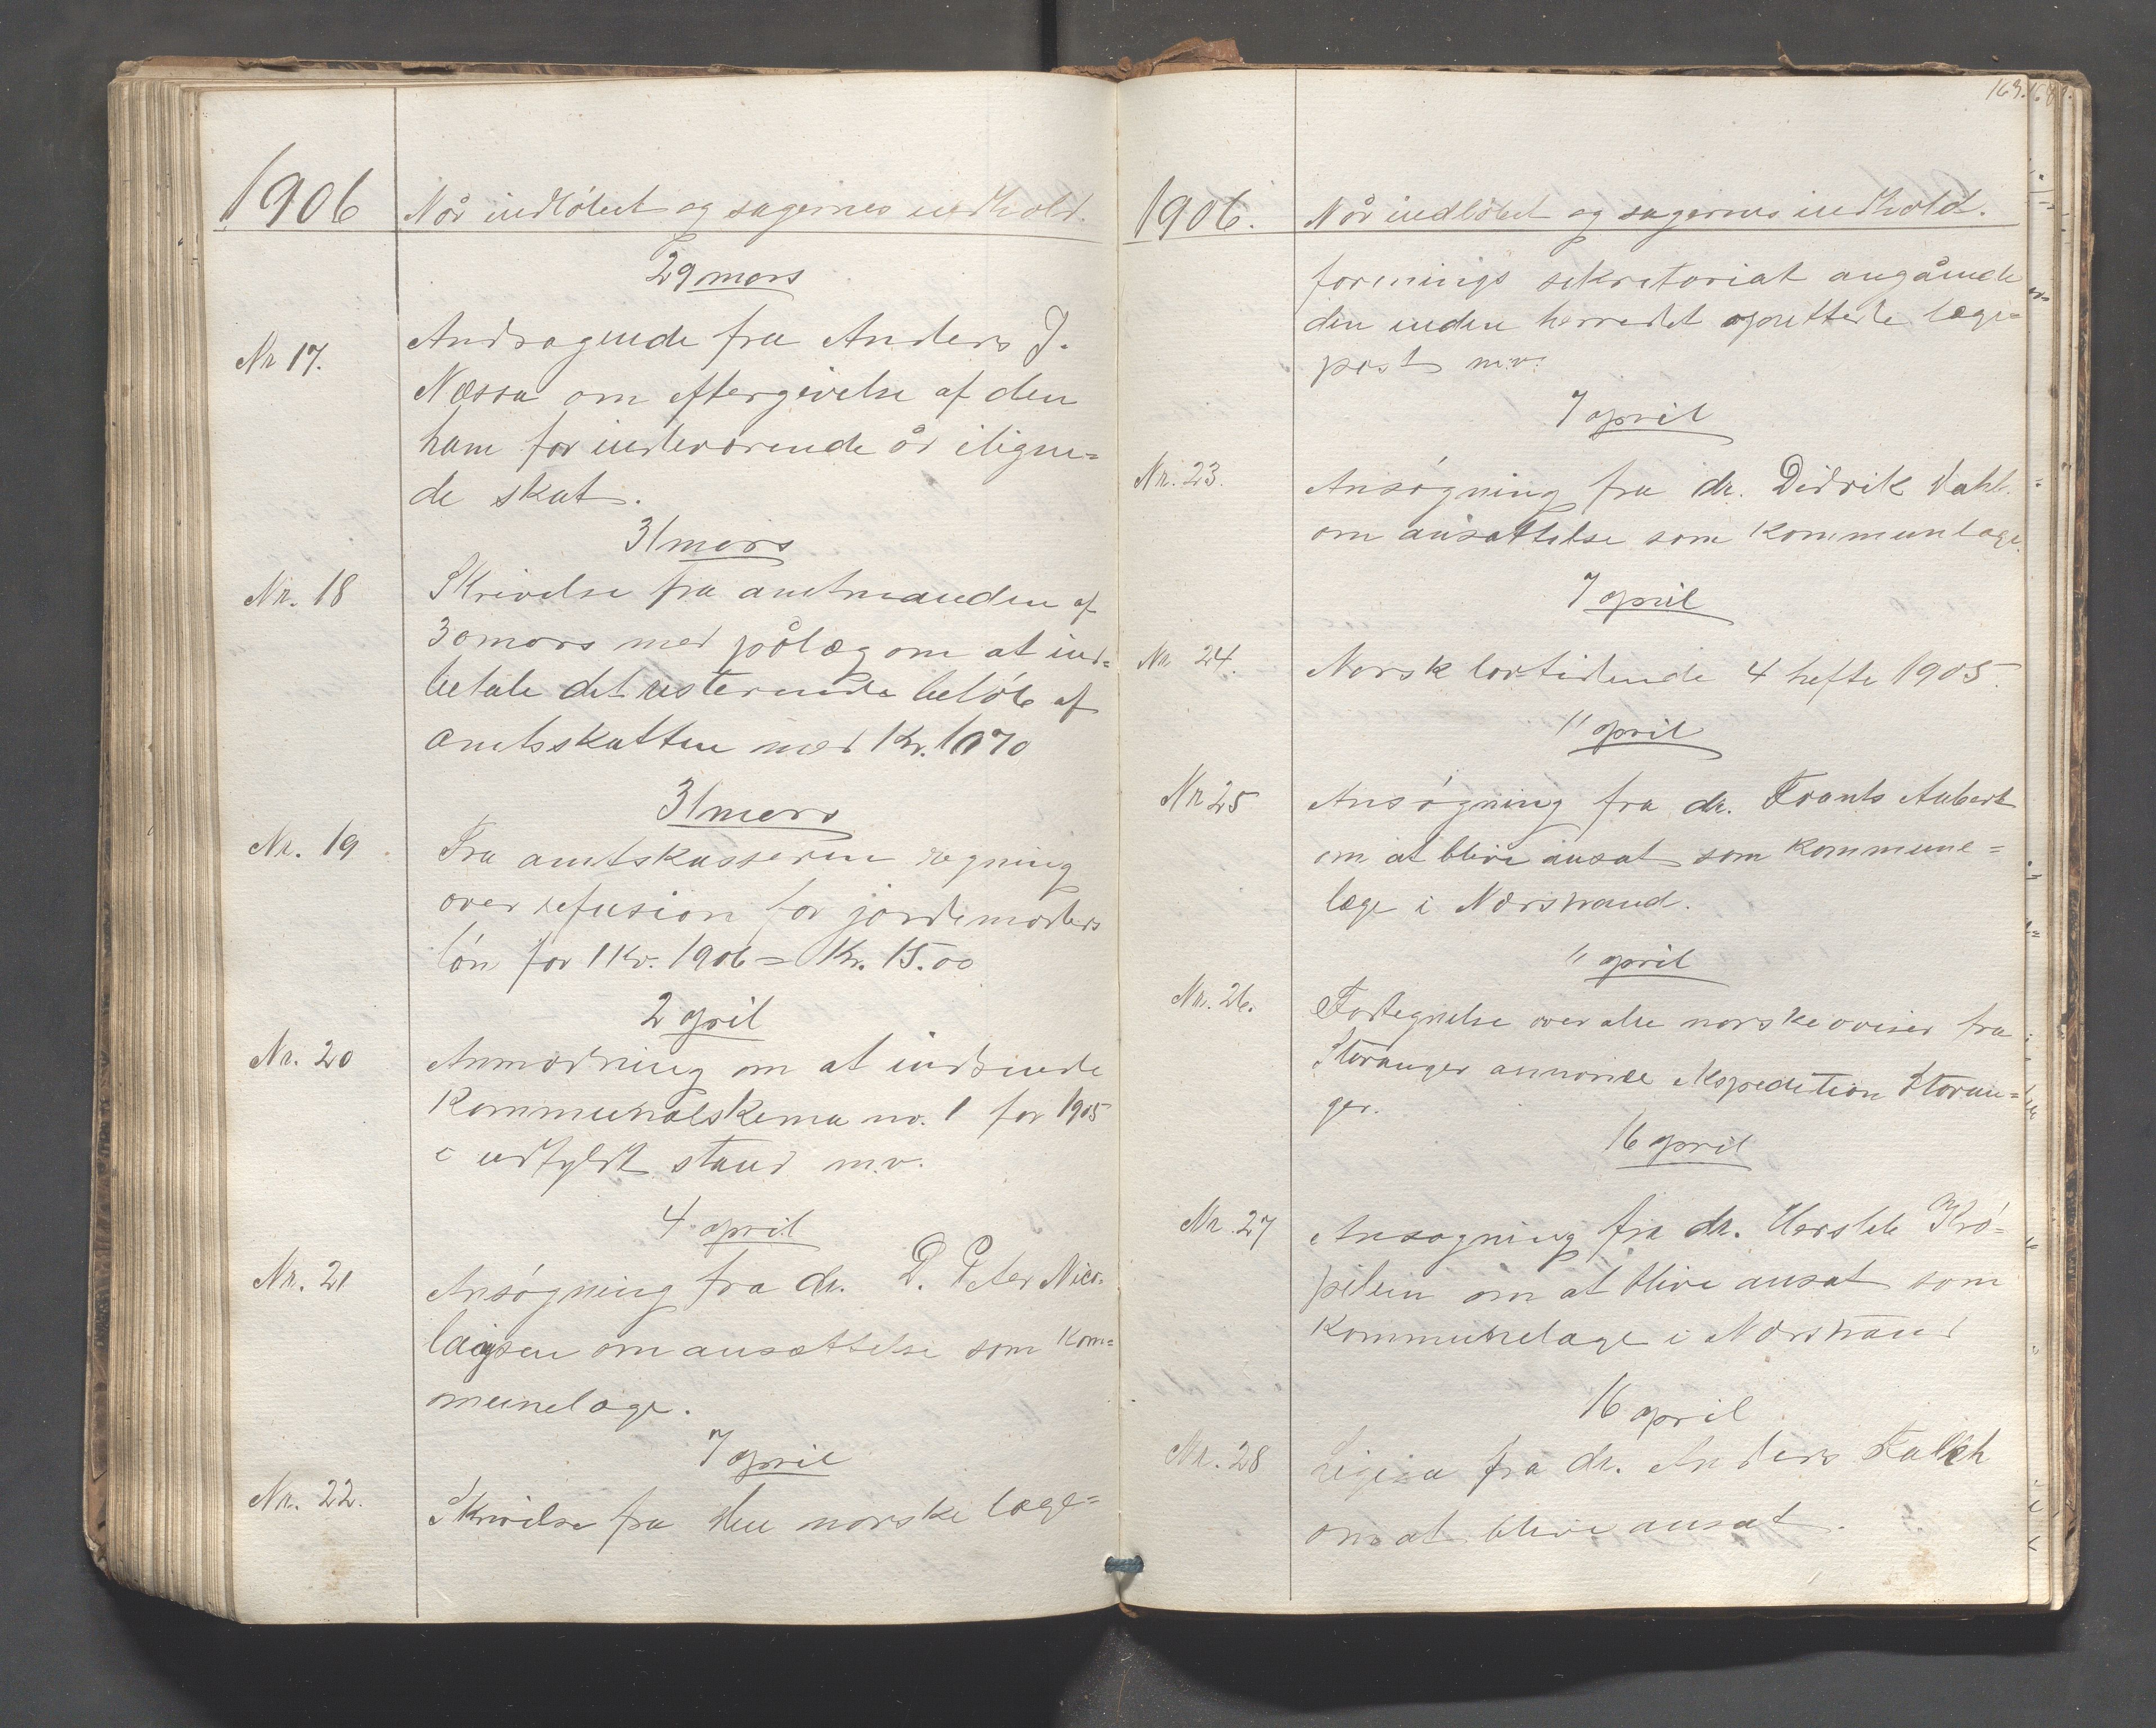 1906
Når indløbet og sagernes indhold.
29 mars
Nr 17.
Andragende fra Anders J.
Næssa om eftergivelse af den
ham for indeværende år iligne=
de skat.
31 mars
Nr. 18
Skrivelse fra amtmanden af
30 mars med pålæg om at ind=
betale det resterende beløb af
amtsskatten med Kr. 1070
31 mars
Nr. 19
Fra amtskasseren regning
over refusion for jordemoders
løn for 1 Kv. 1906 = Kr. 15.00
2 april
Nr. 20
Anmodning om at indsende
Kommunalskema nr. 1 for 1905
i udfyldt stand m.v.
4 april
Nr. 21
Ansøgning fra dr. D. Peter Nico=
laysen om ansættelse som Kom=
munelæge.
7 april
Nr. 22.
Skrivelse fra den norske læge=
169.
1906.
Når indløbet og sagernes indhold.
forenings sekretariat angående
den inden herredet oprettede læge=
post m.v.
7 april
Nr. 23.
Ansøgning fra dr. Didrik Dahl.
om ansættelse som Kommunlæge.
7 april
Nr. 24.
Norsk lovtidende 4 hefte 1905.
11 april
Nr 25
Ansøgning fra dr. Frants Aubert
om at blive ansat som Kommune=
læge i Nærstrand.
11 april
Nr. 26.
Fortegnelse over alle norske aviser fra
Stavanger annonce ekspedition Stavan=
ger.
16 april
Nr. 27
Ansøgning fra dr. Hersleb Krö=
pelien om at blive ansat som
Kommunelæge i Nærstrand
16 april
Nr. 28
Ligesa fra dr. Anders Falkh
om at blive ansat.